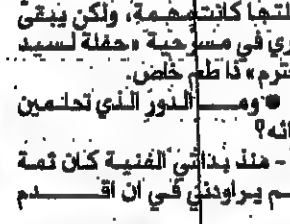 لتها كانت مهمة، ولكن يبقى
ري في مسرحية «حفلة لسيد
ترم» ذا طعم خاص.
● ومـــا الدور الذي تحلمين
ائه؟
- منذ بدايتي الفنية كان ثمة
ـم يراودني في ان اقـــدم